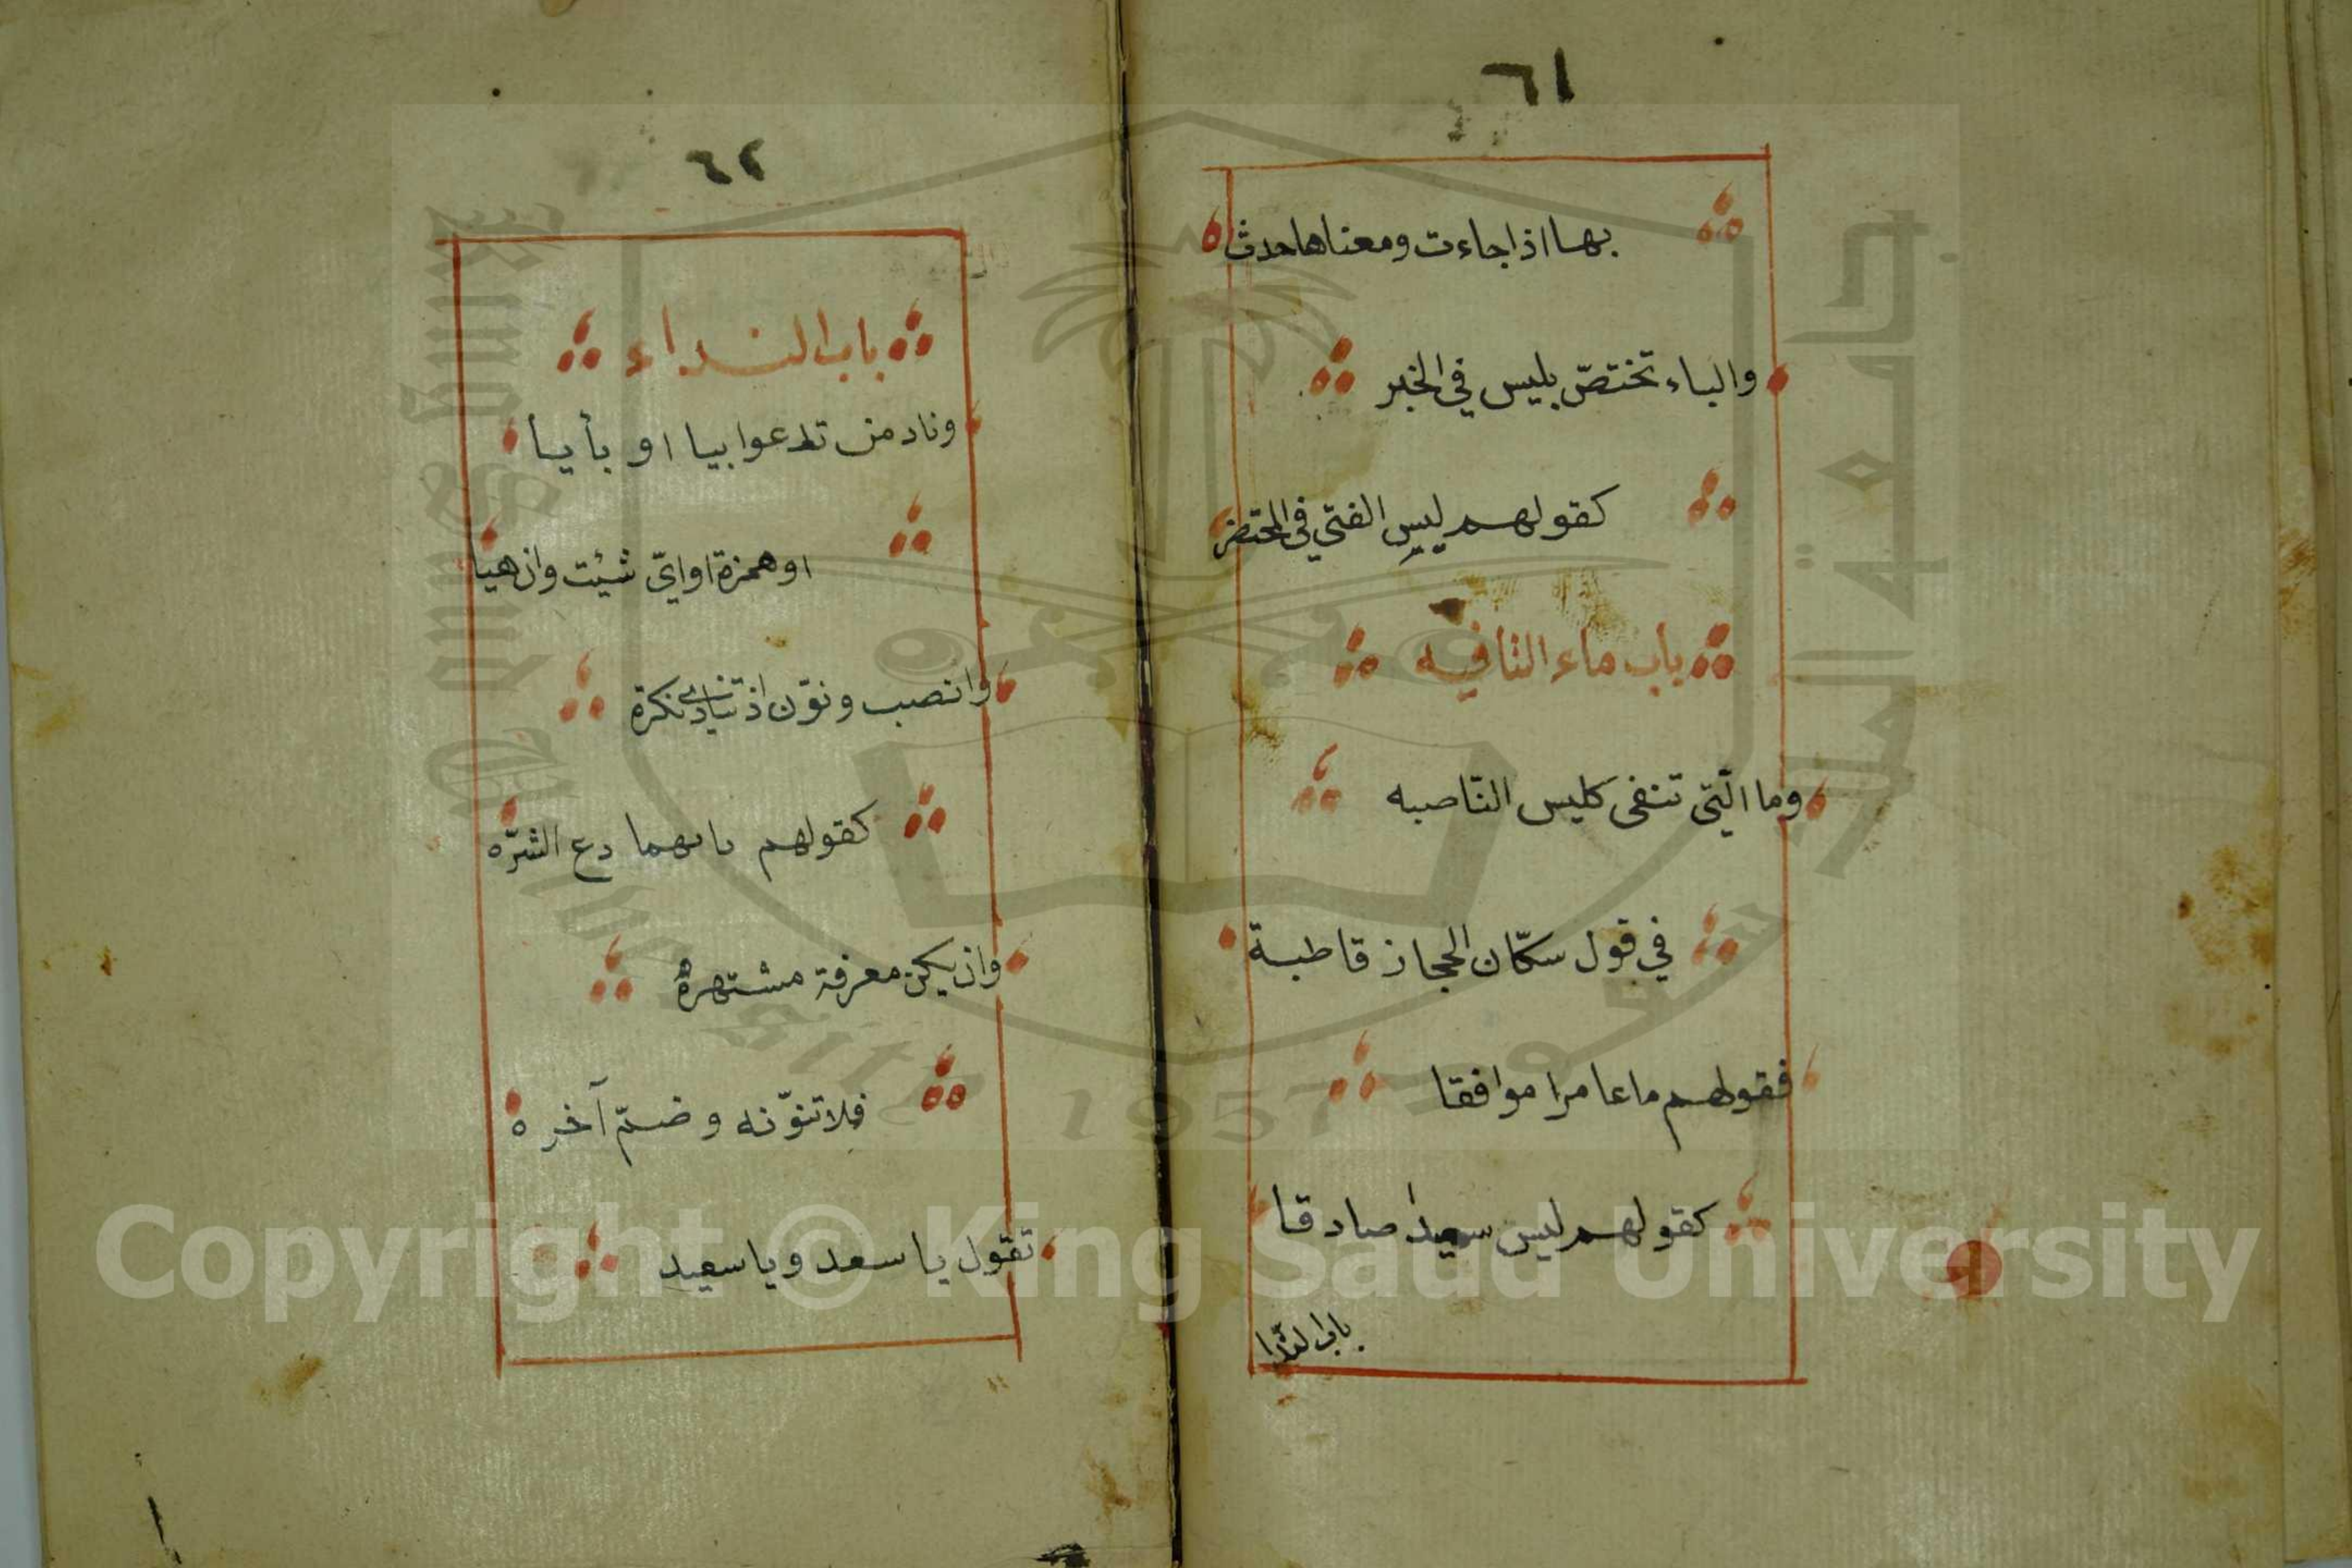 ٦١
بها اذا جاءت ومعناها حدث
والباء تختصّ بليس في الخبر
كقولهم ليس الفتى في المحتضر
باب ماء النافيه
وما الّتي تنفى كليس النّاصبه
في قول سكّان الحجاز قاطبة
فقولهم ما عامرا موافقا
كقولهم ليس سعيدا صادقا
باب النّدا
٦٢
باب النداء
وناد من تدعوا بيا او بأيا
او همزة او ايّ شئت وان هيا
وانصب ونوّن اذ تنادي نكرة
كقولهم دع الشرّه
وان يكن معرفة مشتهره
فلا تنوّنه وضمّ آخره
تقول يا سعد ويا سعيد
جامعة الملك سعود
King Saud University
1957
Copyright © King Saud University